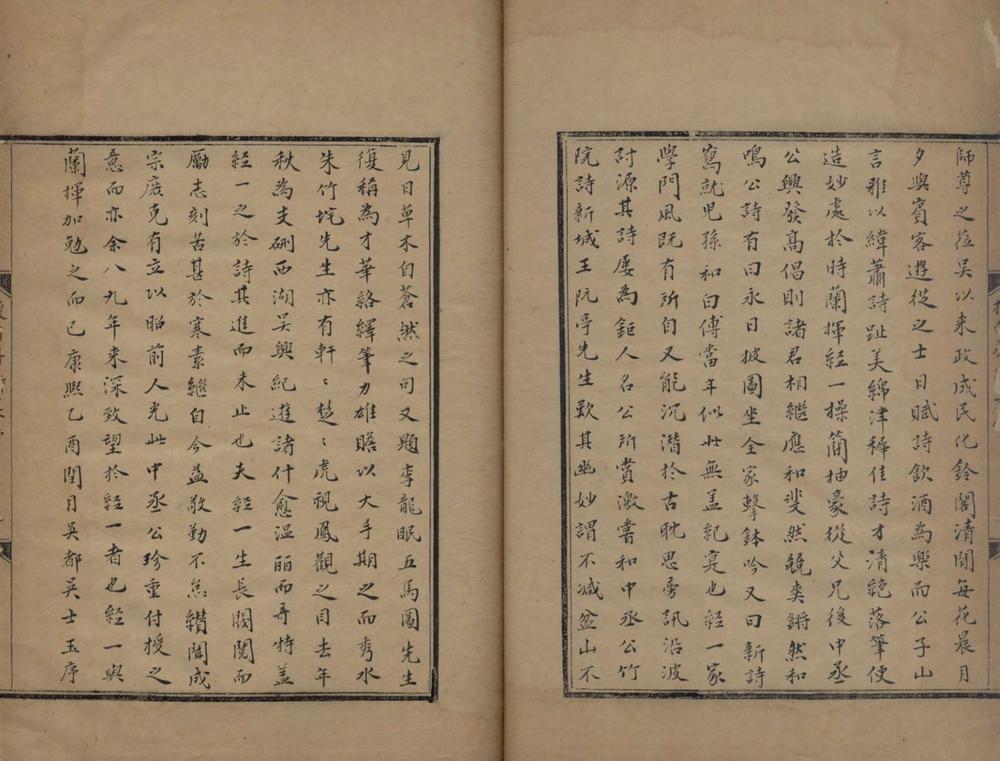 師尊之蒞吳以來政成民化鈴閣清閒每花晨月
夕與賓客遊從之士日賦詩飲酒為樂而公子山
言雅以緯蕭詩趾美綿津穉佳詩才清絕落筆便
造妙處於時蘭揮經一操簡抽豪從父兄後中丞
公興發高倡則諸君相繼應和斐然競奏鏘然和
鳴公詩有曰永日披圖坐全家擊鉢吟又曰新詩
寫就児孫和白傅當年似此無蓋紀寔也經一家
學門風既有所自又能沉潛於古耽思旁訊沿波
討源其詩屢為鉅人名公所賞激嘗和中丞公竹
院詩新城王阮亭先生歎其幽妙謂不減盆山不
見日草木自蒼然之句又題李龍眠五馬圖先生
復稱為才華絡繹筆力雄贍以大手期之而秀水
朱竹垞先生亦有軒〻楚〻虎視鳳觀之目去年
秋為支硎西湖吳興紀遊諸什愈溫丽而奇特蓋
經一之於詩其進而未止也夫經一生長閥閱而
勵志刻苦甚於寒素繼自今益敬勤不怠纘聞成
宗廣克有立以昭前人光此中丞公珍重付授之
意而亦余八九年来深致望於經一者也經一與
蘭揮加勉之而已康熙乙酉閏月吳都吳士玉序